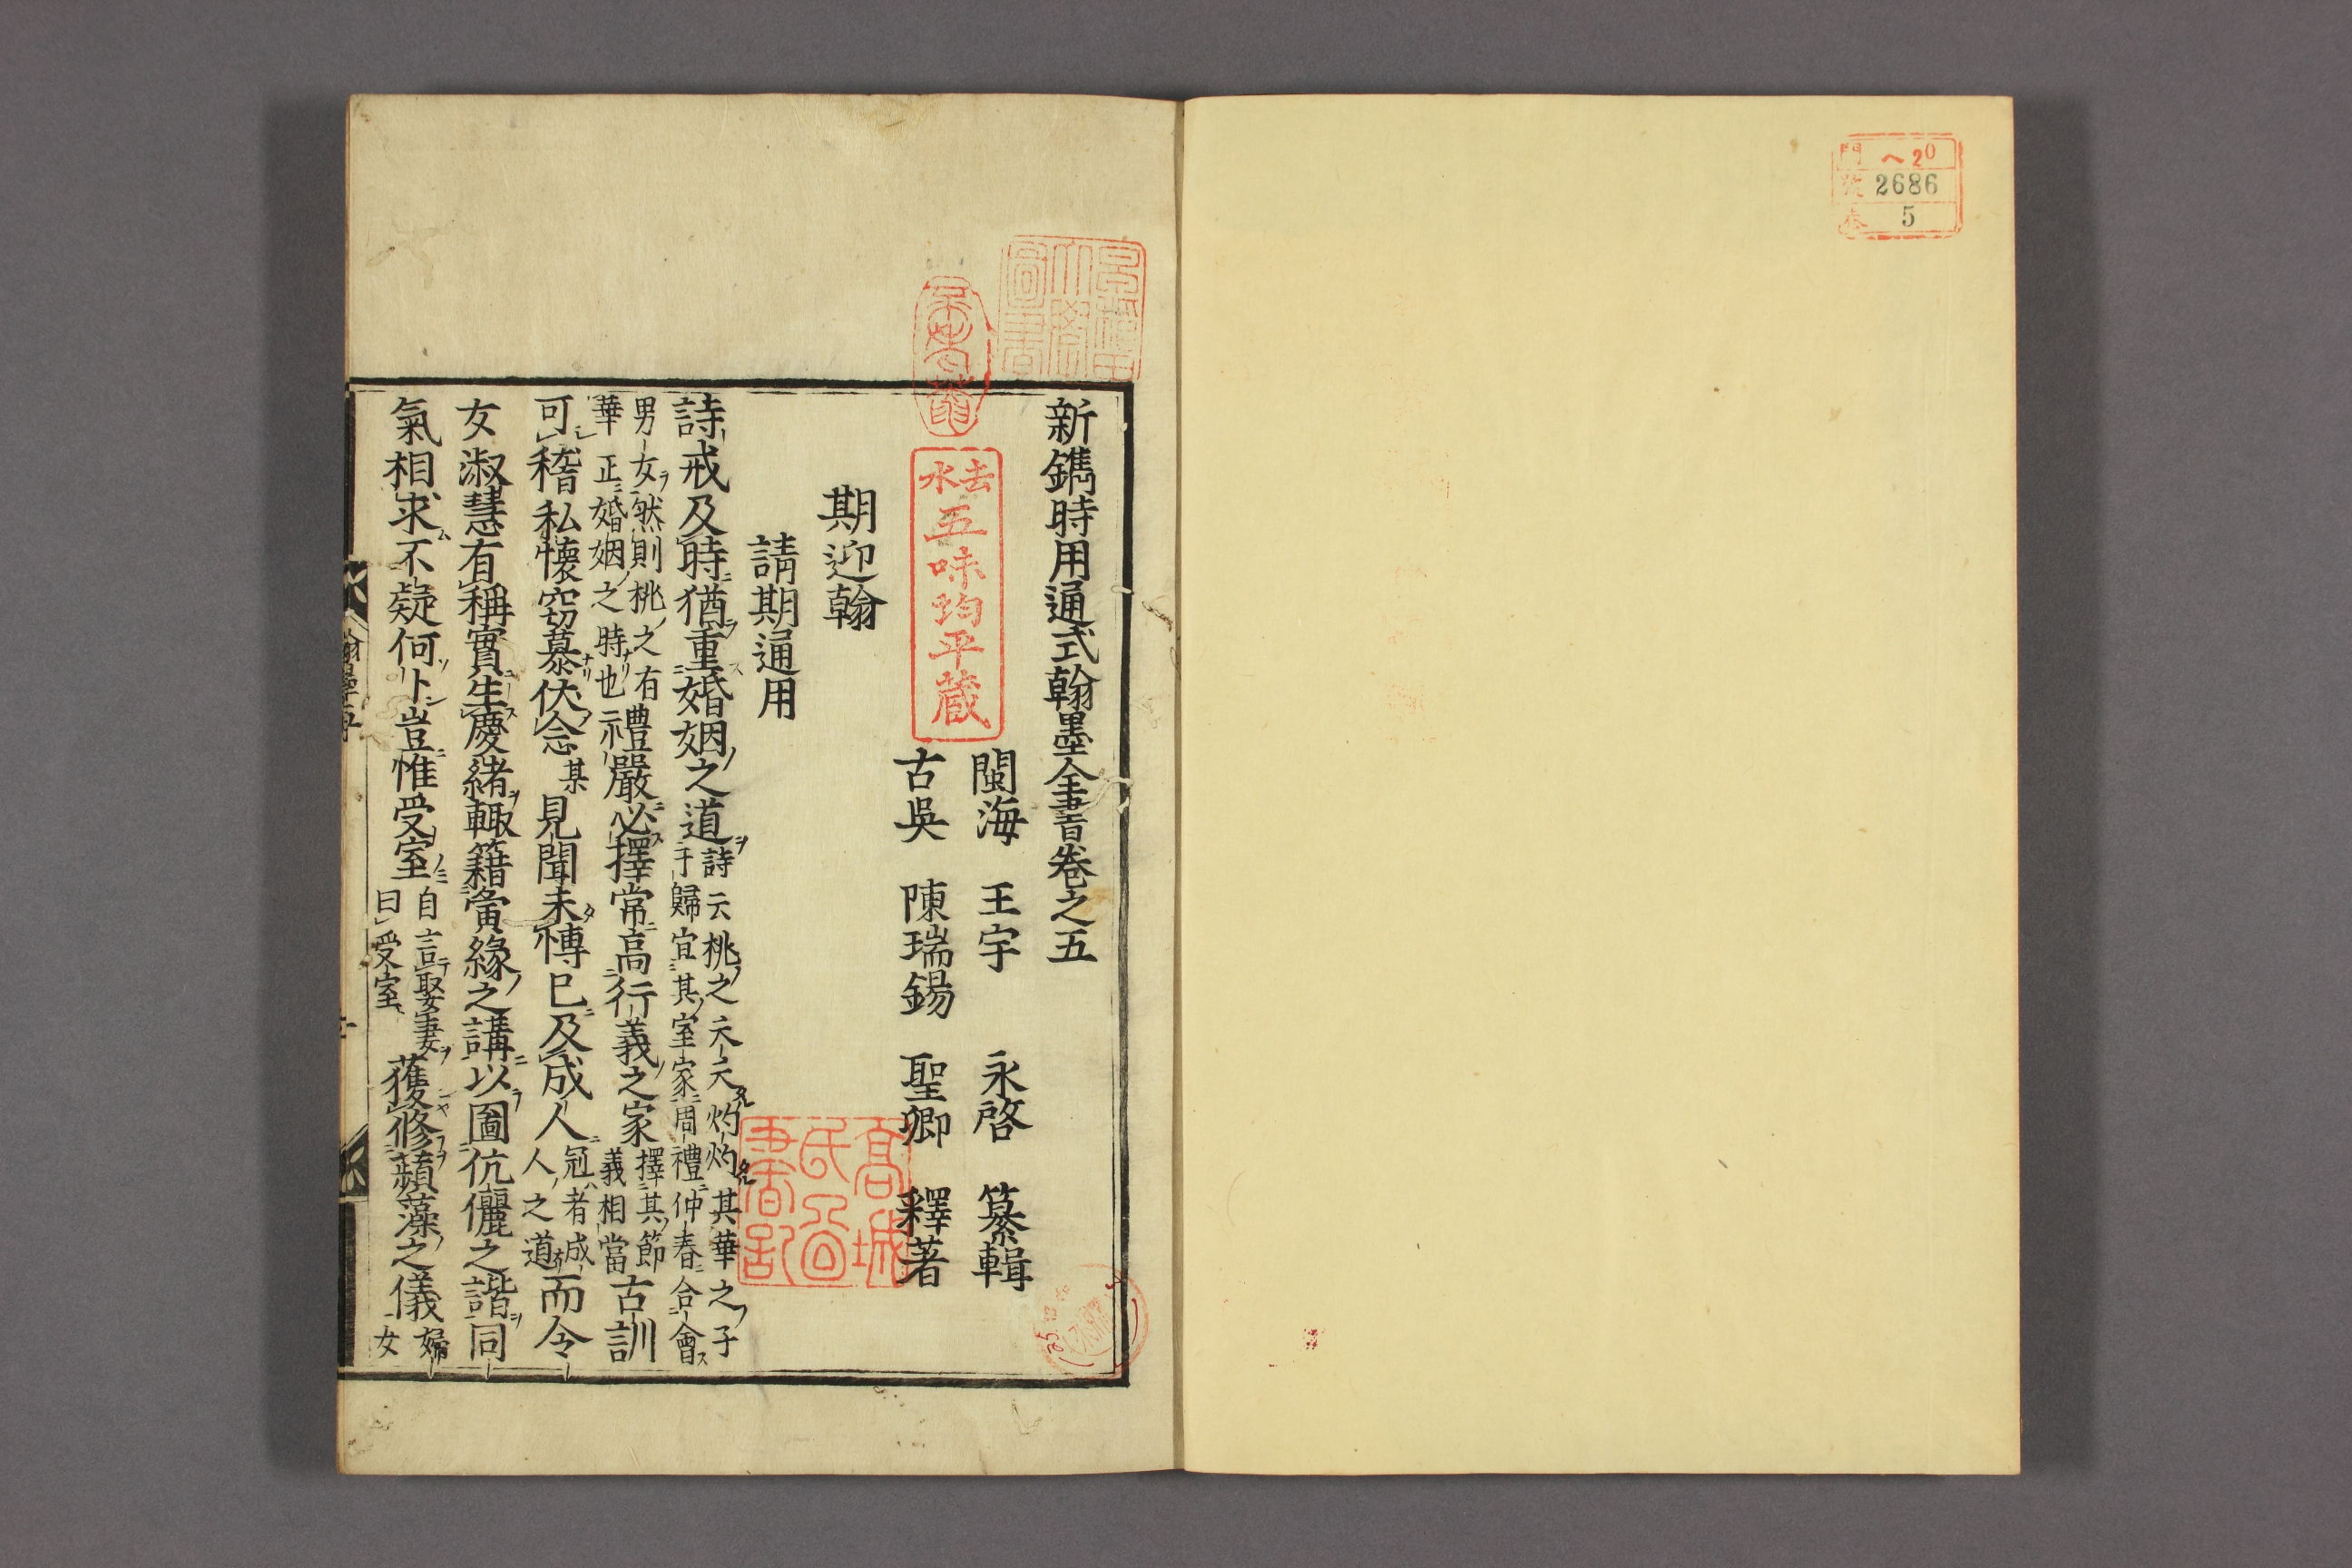 門 ヘ20
號 2686
卷 5
新鐫時用通式翰墨全書卷之五
閩海 王宇 永啓 纂輯
古吳 陳瑞錫 聖卿 釋著
去水 五味均平藏
高城氏圖書記
期迎翰
請期通用
詩戒及時猶重婚姻之道詩云桃之夭夭灼灼其華之子
于歸宜其室家周禮仲春合會
男女然則桃之有
華正婚姻之時也禮嚴必擇常高行義之家擇其節
義相當古訓
可稽私懷窃慕伏念某見聞未博已及成人冠者成
人之道而令
女淑慧有稱實生慶緒輙籍夤緣之講以圖伉儷之諧同
氣相求不疑何卜豈惟受室自言娶妻
曰受室獲修蘋藻之儀婦
女